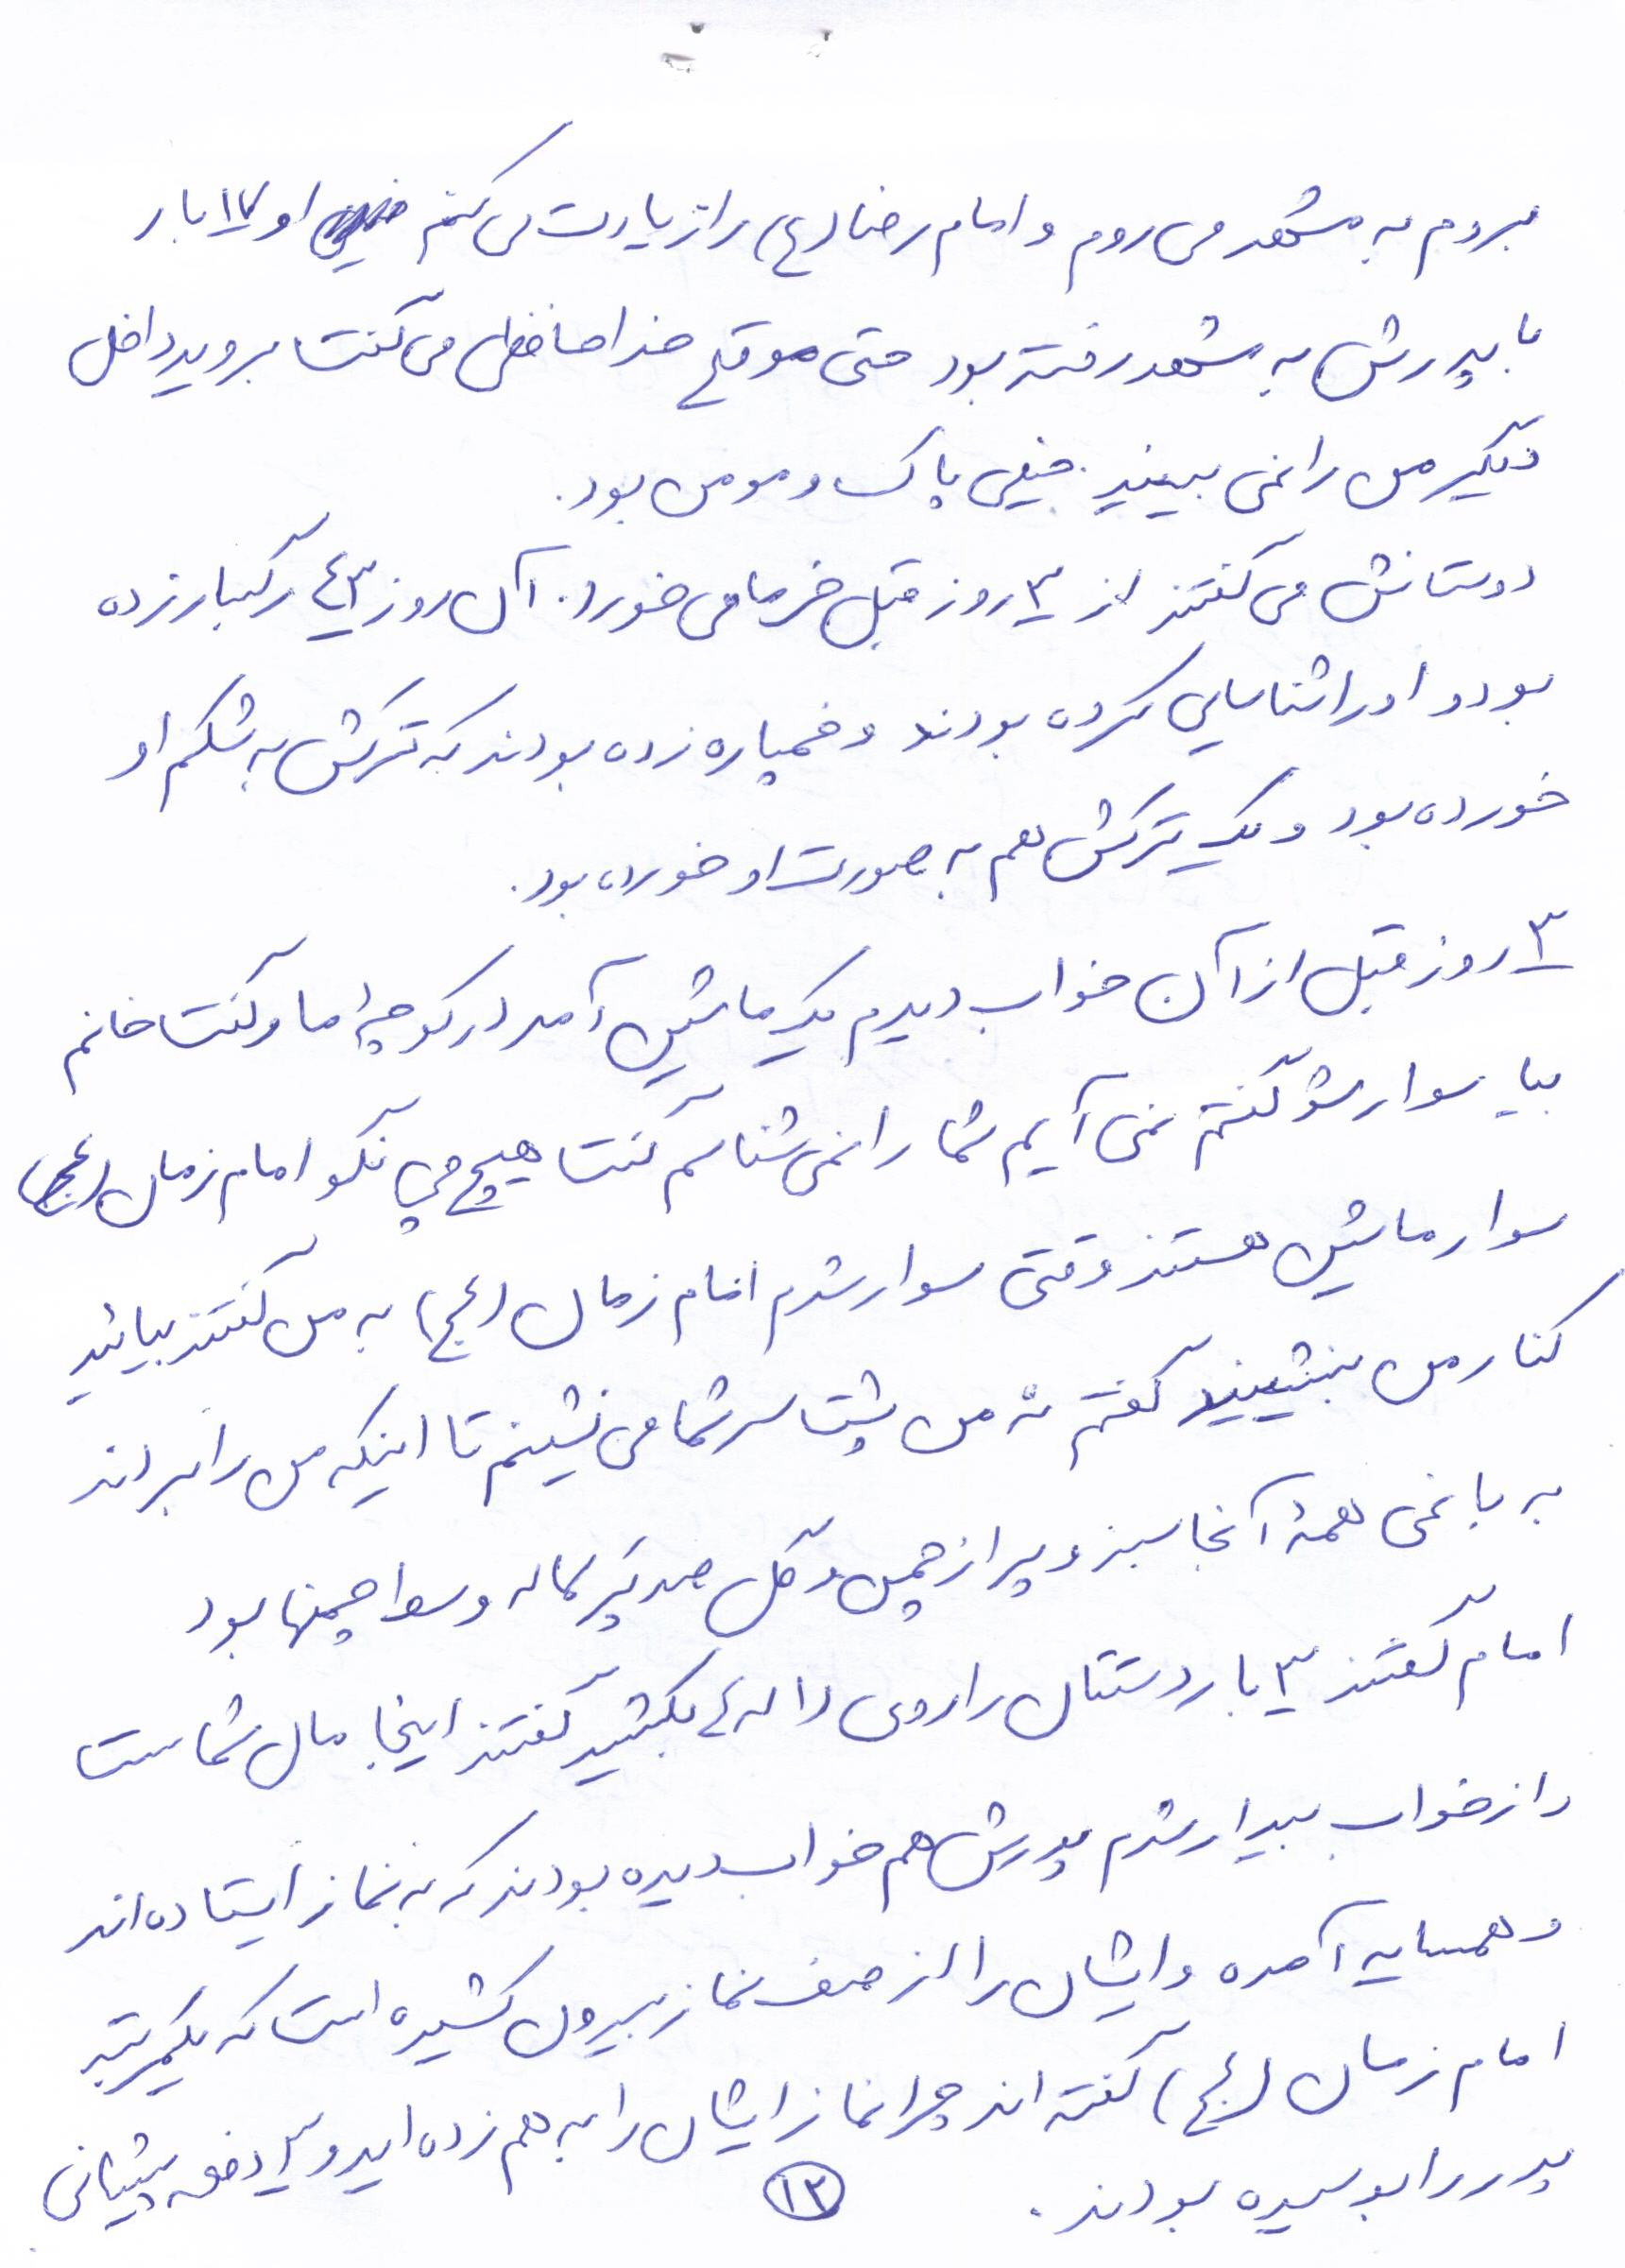 بروم به مشهد می روم و امام رضا (ع) را زیارت می کنم او ۱۷ بار
با پدرش به مشهد رفته بود حتی موقع خداحافظی می گفت بروید داخل
دیگر من را نمی بینید. خیلی پاک و مومن بود.
دوستانش می گفتند از ۳ روز قبل خرما می خورد. آن روز ۴۳ رگبار زده
بود و او را شناسایی کرده بودند و خمپاره زده بودند که ترکش به شکم او
خورده بود و یک ترکش هم به صورت او خورده بود.
۳ روز قبل از آن خواب دیدم یک ماشین آمد در کوچۀ ما و گفت خانم
بیا سوار شو گفتم نمی آیم شما را نمی شناسم گفت هیچ چی نگو امام زمان (عج)
سوار ماشین هستند وقتی سوار شدم امام زمان (عج) به من گفتند بیائید
کنار من بنشینید گفتم نه من پشت سر شما می نشینم تا اینکه من را بردند
به باغی همۀ آنجا سبز و پر از چمن و گل بود و وسط چمنها بود
امام گفتند ۳ بار دستتان را روی بکشید گفتند اینجا مال شماست
و از خواب بیدار شدم پدرش هم خواب دیده بودند که به نماز ایستاده اند
و همسایه آمده و ایشان را از صف نماز بیرون کشیده است که یکمرتبه
امام زمان (عج) گفته اند چرا نماز ایشان را به هم زده اید و ۳ دفعه پیشانی
پدر را بوسیده بودند.
۱۳